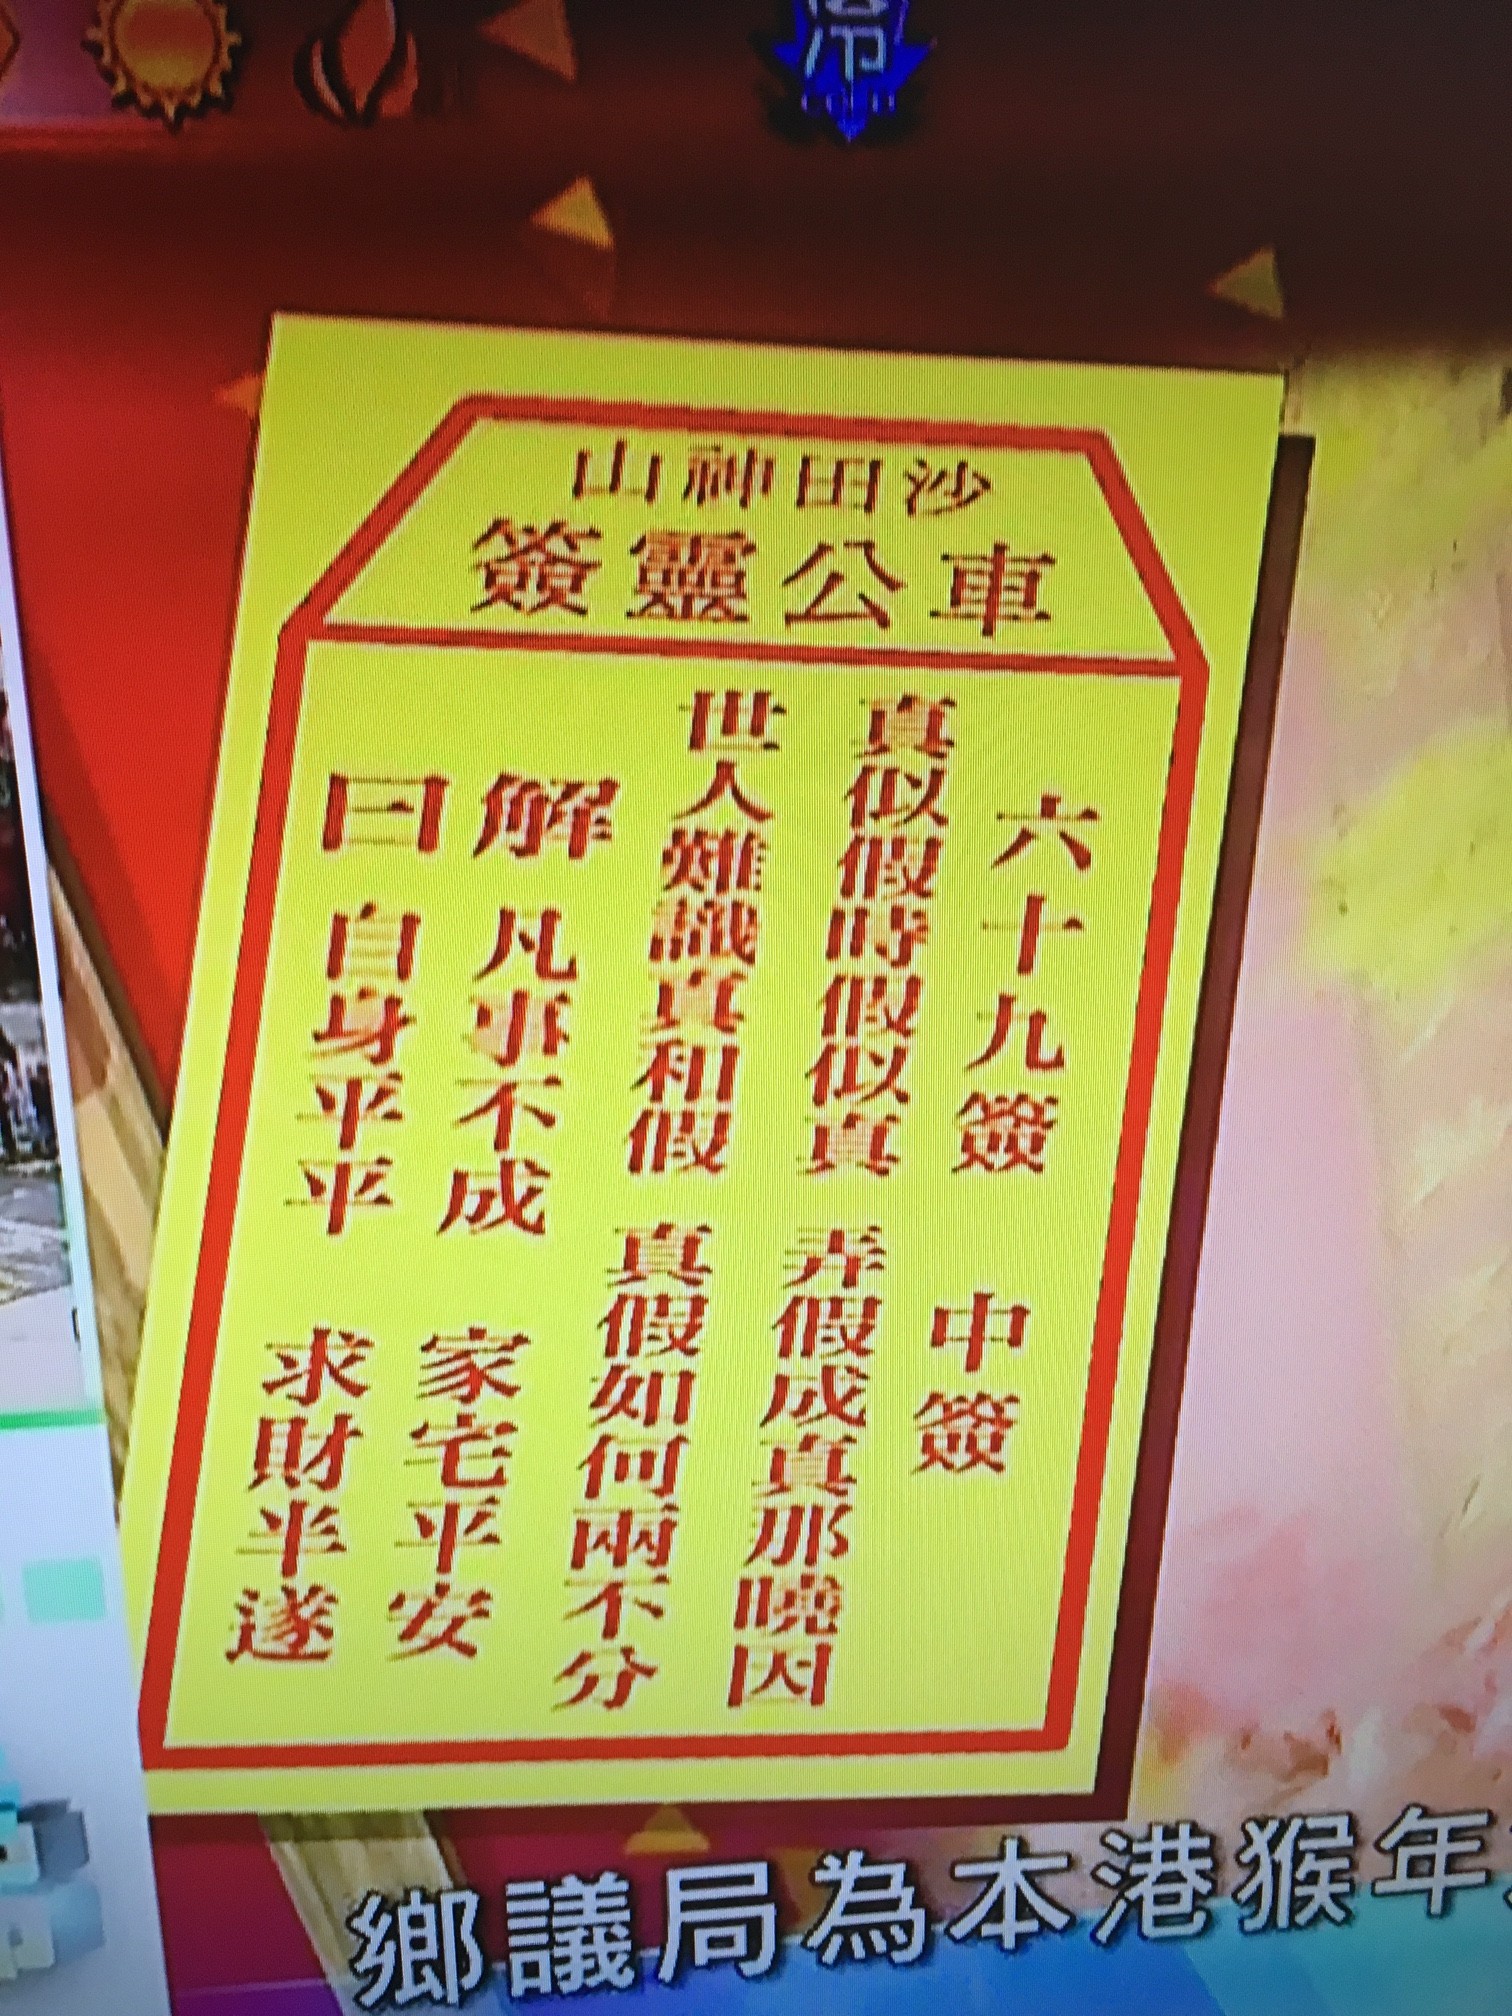 冷
沙田神山
車公靈簽
六十九簽 中簽
真似假時假似真 弄假成真那曉因
世人難識真和假 真假如何兩不分
解 凡事不成 家宅平安
曰 自身平平 求財半遂
鄉議局為本港猴年